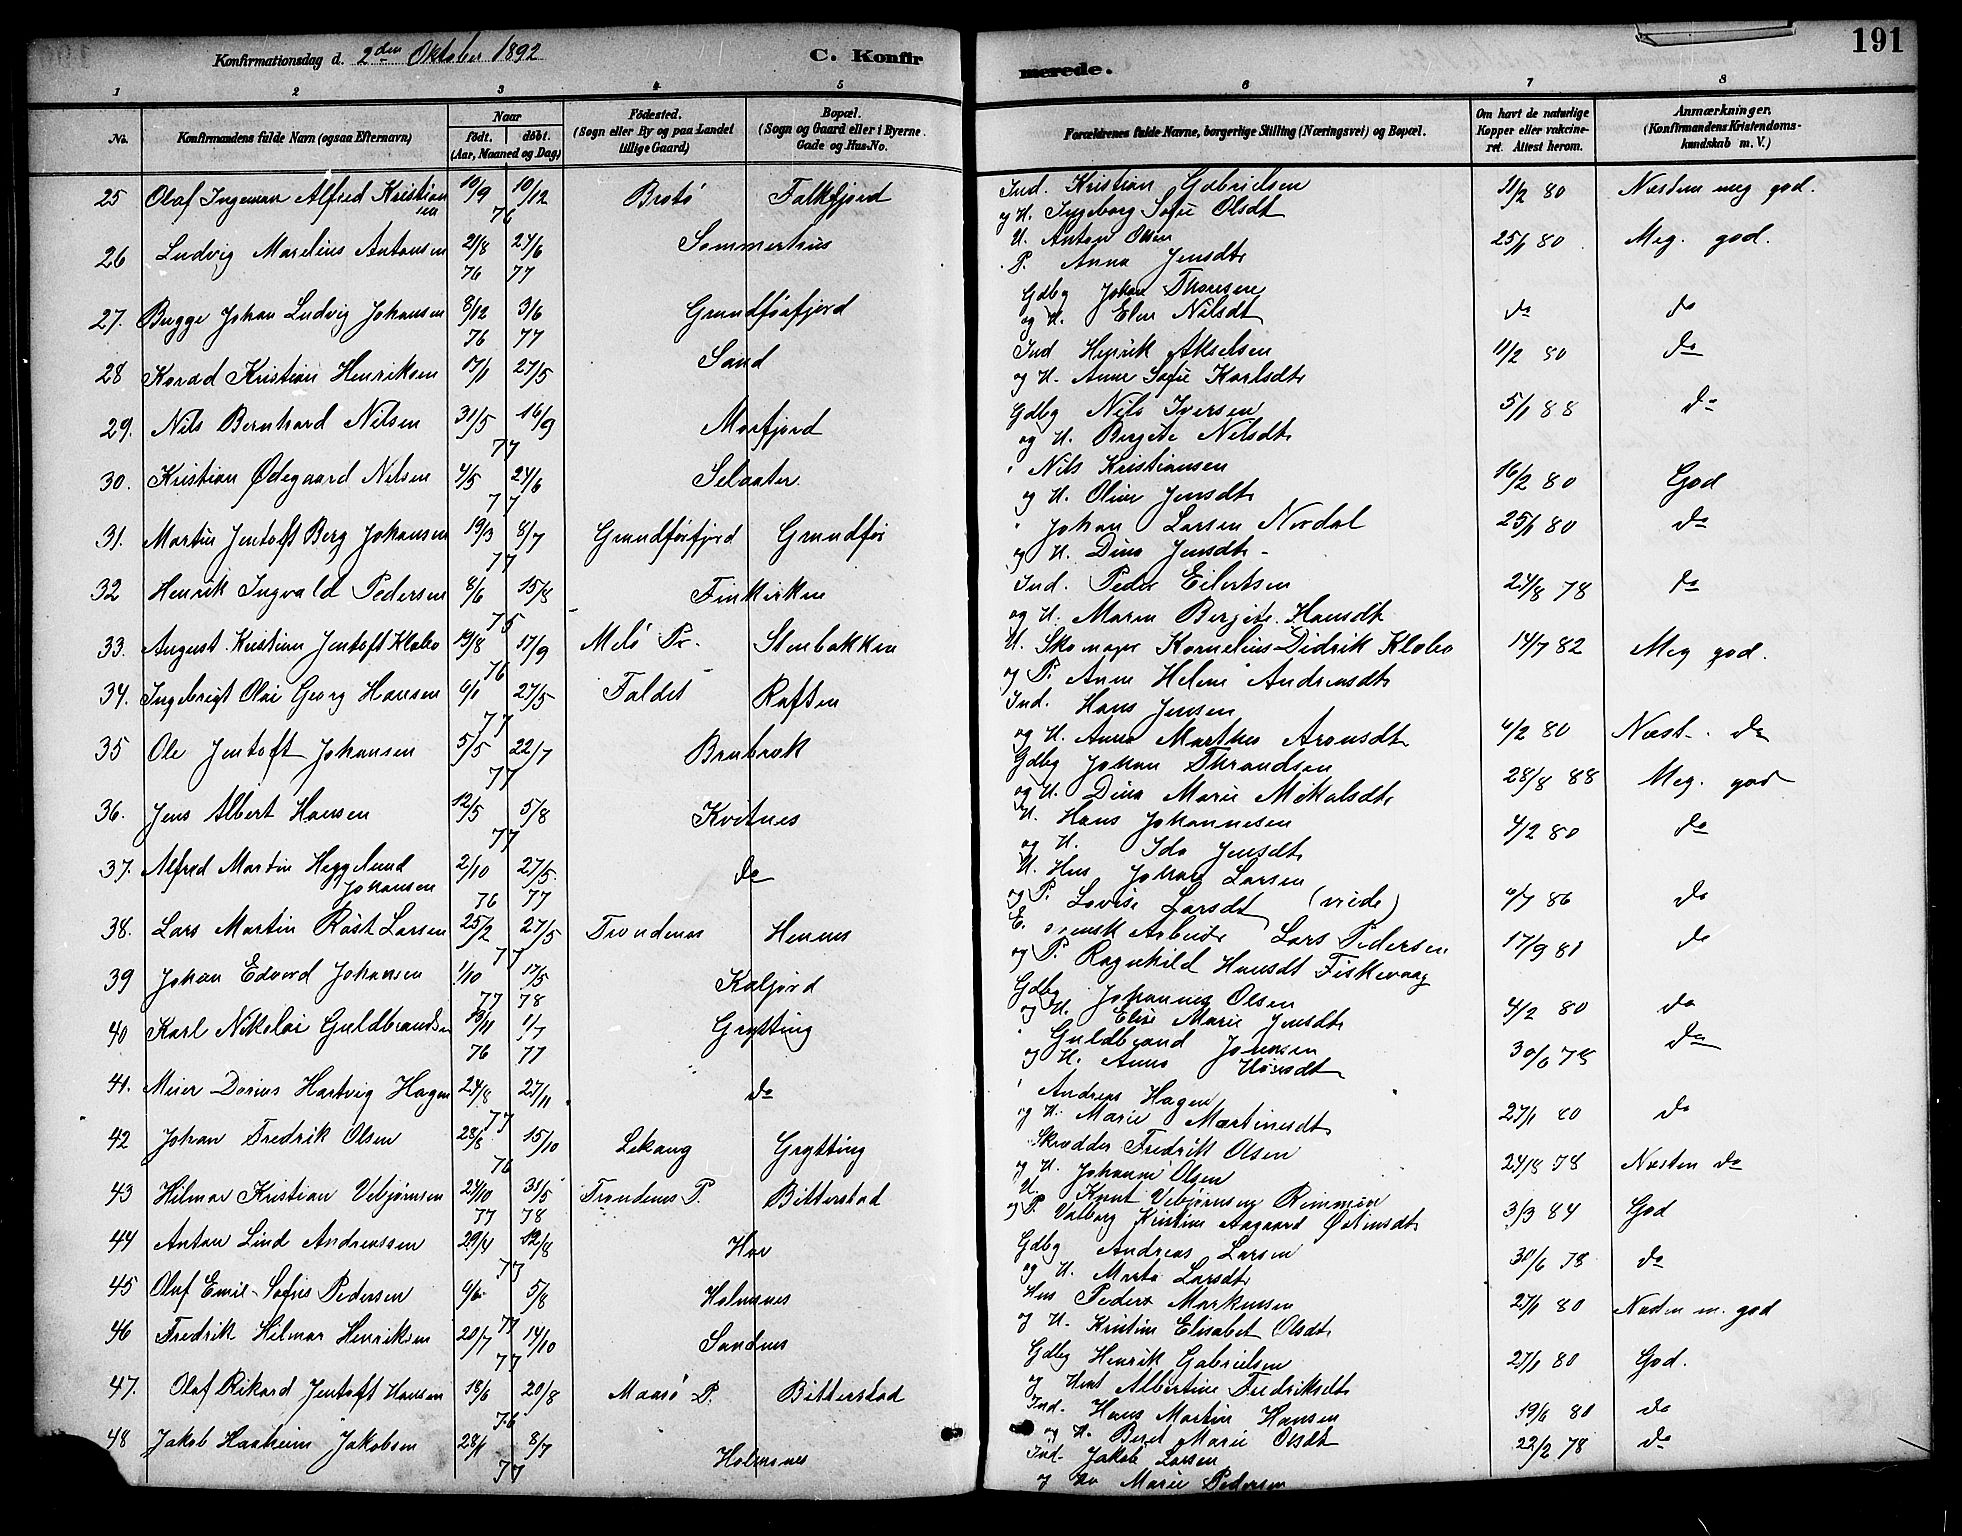 191
Konfirmationsdag d. 2den Oktober 1892
C. Konfirmerede.
1 2 3 4 5 6 7 8
No. Konfirmandens fulde Navn (ogsaa Efternavn) Naar født. døbt. (Aar, Maaned og Dag) Födested. (Sogn eller By og paa Landet tillige Gaard) Bopæl. (Sogn og Gaard eller i Byerne Gade og Hus-No. Forældrenes fulde Navne, borgerlige Stilling (Næringsvei) og Bopæl. Om havt de naturlige Kopper eller vakcineret. Attest herom. Anmærkninger, (Konfirmandens Kristendomskundskab m. V.)
25 Olaf Ingeman Alfred Kristiansen 10/9 10/12 76 Brotö Falkfjord Ind. Kristian Gabrielsen og H. Ingeborg Sofie Olsdt 11/2 80 Næsten meg god.
26 Ludvig Marelius Antonsen 21/8 24/6 76 77 Sommerhus U. Anton Olsen P. Anna Jensdt 25/1 80 Meg. god.
27. Bugge Johan Ludvig Johansen 8/12 3/6 76 77 Grundförfjord Gdbg Johan Thoresen og H. Elen Nilsdt do do
28 Korad Kristian Henriksen 17/1 27/5 Sand Ind Henrik Akselsen og H. Anne Sofie Karlsdt 11/2 80 do
29. Nils Bernhard Nilsen 31/5 16/9 77 Morfjord Gdbg Nils Iversen og H. Bergite Nilsdt 5/1 88 do
30. Kristian Ødegaard Nilsen 4/5 24/6 77 Selaater Nils Kristiansen og H. Oline Jensdt 16/2 80 God
31. Martin Jentoft Berg Johansen 19/3 8/7 77 Grundförfjord Grundför Johan Larsen Nordal og H. Dina Jensdt 25/1 80 do
32 Henrik Ingvald Pedersen 8/6 15/8 75 Finkirken Ind. Peder Eilertsen og H. Maren Bergite Hansdt 24/8 78 do
33. August Kristian Jentoft Klæbo 19/8 17/9 76 Melö Pr. Stenbakken U. Skomager Kornelius Didrik Klæbo og P. Anne Heline Andreasdt 14/7 82 Meg god.
34. Ingebrigt Olai Georg Hansen 6/1 27/5 77 Faldet Raften Ind. Hans Jensen og H. Anna Marthea Aronsdt 4/2 80 Næst. do
35 Ole Jentoft Johansen 5/5 22/7 77 Brubræk Gdbg Johan Thrandsen og H. Dina Marie Mikalsdt 28/8 88 Meg. god
36. Jens Albert Hansen 12/5 5/8 77 Kvitnes U. Hans Johannesen og H. Ida Jensdt 4/2 80 do
37. Alfred Martin Hegglund Johansen 2/10 27/5 76 77 do U. Hus Johan Larsen og P. Lovise Larsdt 6/7 86 do
38. Lars Martin Röst Larsen 25/2 27/5 77 Trondenes Hennes E. svensk Arbeider Lars Pedersen og P. Ragnhild Hansdt Fiskevaag 17/9 81 do
39 Johan Edvard Johansen 1/10 17/5 77 78 Kaljord Gdbg Johannes Olsen og H. Elise Marie Jensdt 4/2 80 do
40 Karl Nikolai Guldbrandsen 13/11 1/7 76 77 Grytting Guldbrand Jonassen og H. Anna 30/6 78 do
41. Meier Dorius Hartvig Hagen 24/8 27/11 77 do Andreas Hagen og H. Marie Martinusdt 27/1 80 do
42 Johan Fredrik Olsen 28/8 15/10 76 Lekang Grytting Skrædder Fredrik Olsen og H. Johanne Olsen 24/8 78 Næsten do
43 Hilmar Kristian Vebjørnsen 24/10 31/5 77 78 Trondenes P. Bitterstad U. Knut Vebjørnsen og P. Valborg Kristine Aagaard Østensdt 3/3 84 God
44 Anton Lind Andreassen 29/4 12/8 77 Hov Gdbg Andreas Larsen og H. Marta Larsdt 30/6 78 do
45 Oluf Emil Sofus Pedersen 6/6 5/8 77 Holmsnes Hus Peder Markussen og H. Kristine Elisabet Olsdt 27/1 80 Næsten m. god
46 Fredrik Hilmar Henriksen 20/7 14/10 77 Sandnes Gdbg Henrik Gabrielsen og Hust Albertine Fredriksdt 27/1 80 God.
47. Olaf Rikard Jentoft Hansen 18/6 20/8 76 Maasö P. Bitterstad Ind. Hans Martin Hansen og H. Beret Marie Olsdt 19/6 80 do
48 Jakob Haakein Jakobsen 28/1 8/7 77 Holmsnes Ind. Jakob Larsen og Marie Pedersen 22/2 78 do